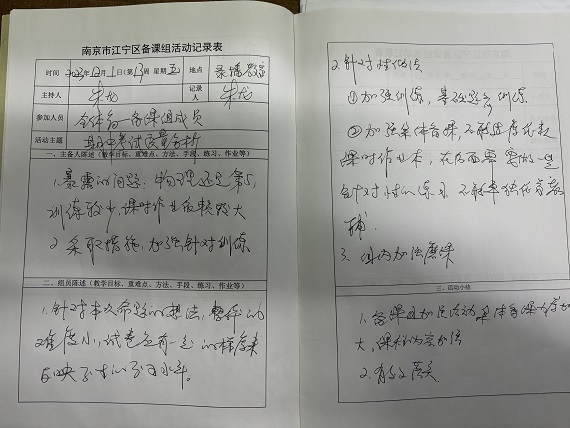 南京市江宁区备课组活动记录表
时间 2023年12月1日(第13周 星期五) 地点 录播教室
主持人 朱龙 记录人 朱龙
参加人员 全体高一备课组成员
活动主题 期中考试质量分析
一、主备人陈述(教学目标、重难点、方法、手段、练习、作业等)
1.暴露的问题:物理还是
训练较少,课时作业依赖较大
2.采取措施,加强针对训练
二、组员陈述(教学目标、重难点、方法、手段、练习、作业等)
1.针对本次命题的想法,整体的
难度小,试卷是有一定的梯度来
反映不同的不同水平。
2.针对性做法
①加强训练,基础题多训练
②加强集体备课,不能过度依赖
课时作业本,在后面需要一些
针对性的练习,不能单独依靠教
辅.
3.组内加强磨课
三、活动小结
1.备课组加 活动 集体备课力度加
大,课
2.有效